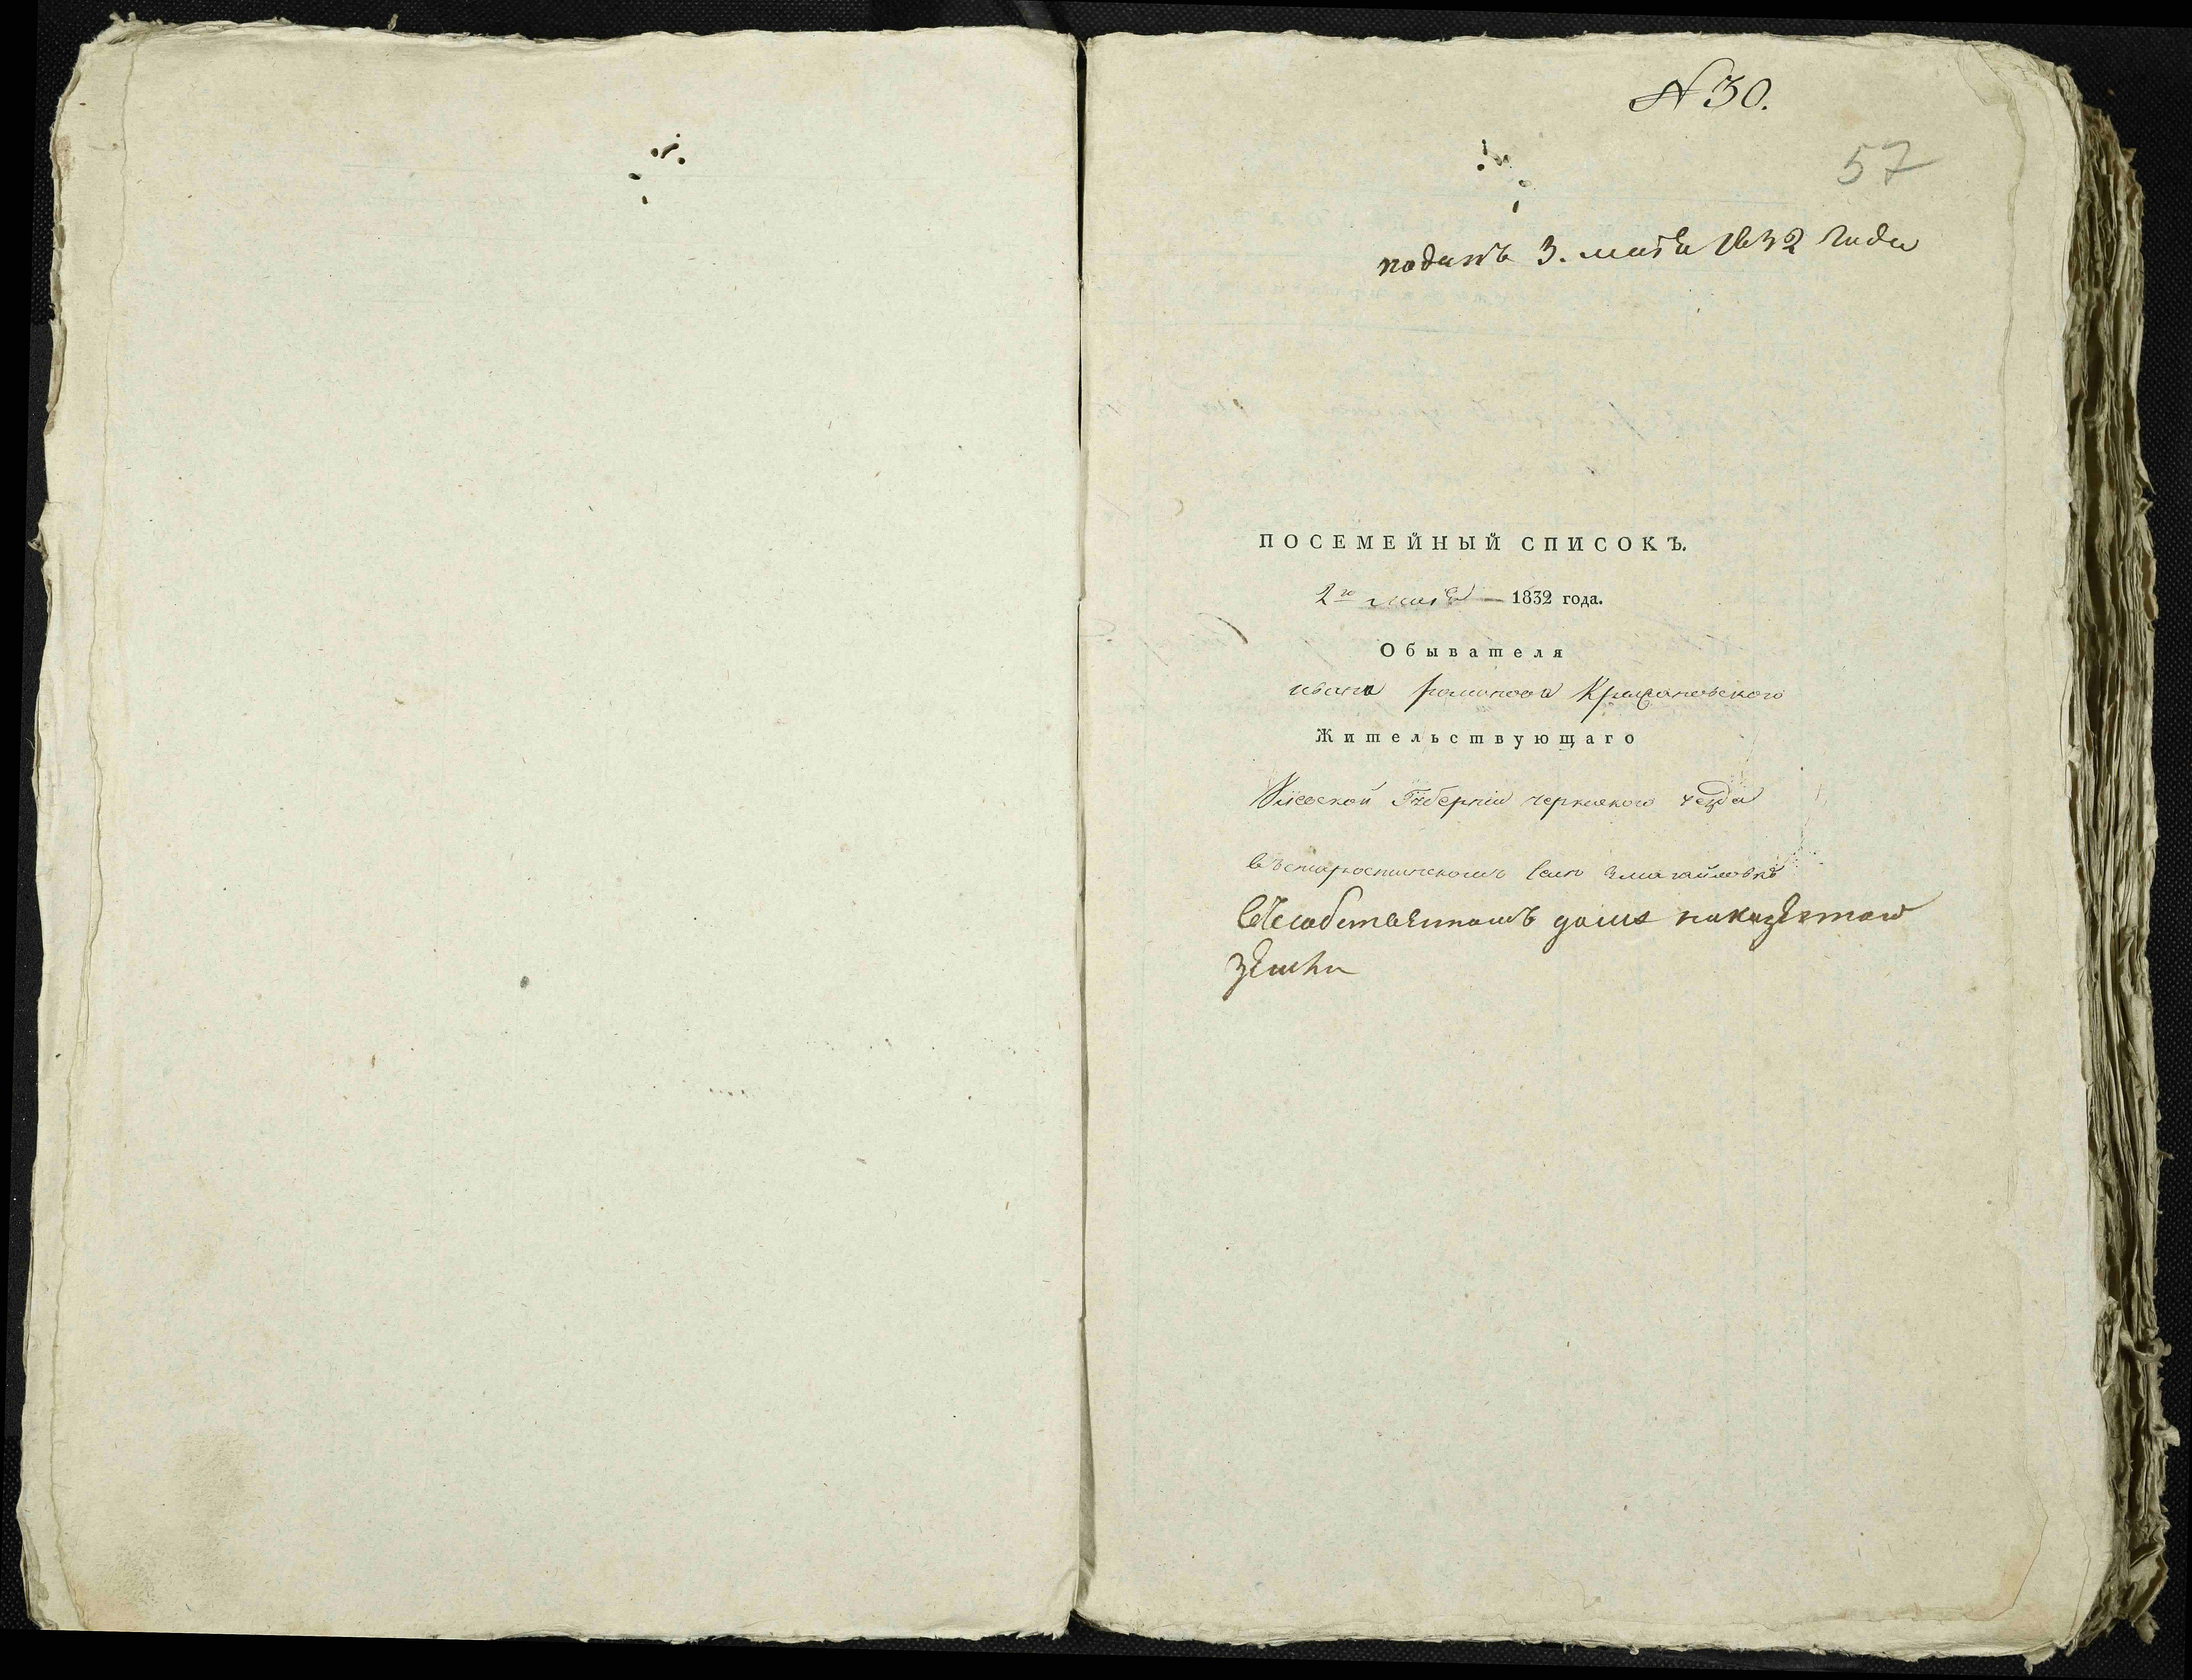 N 30.
57
поданъ 3. маія 1832 года
ПОСЕМЕЙНЫЙ СПИСОКЪ.
2го маія 1832 года.
Обывателя
ивана романова Крыжановского
Жительствующаго
Кіевской Губерніи черкаского уезда
въ старостинскомъ селе Змагайловкѣ
въ собственномъ доме на казенной
земли